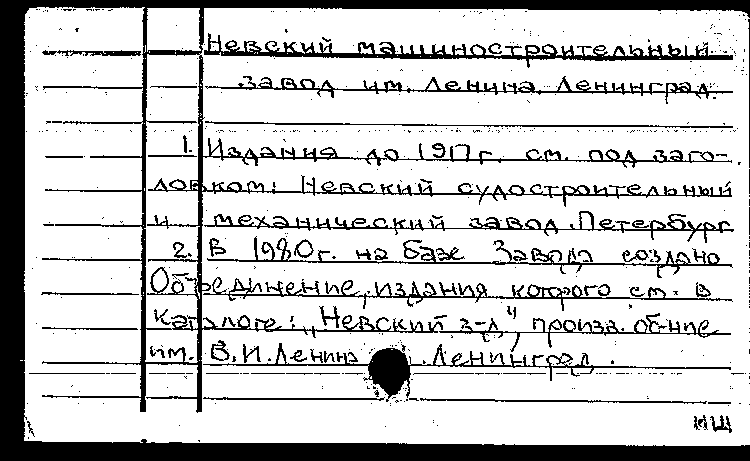 Невский машиностроительный
завод им. Ленина. Ленинград.
1. Издания до 1917г. см. под заго-
ловком: Невский судостроительный
и механический завод. Петербург
2. В 1980г. на базе Завода создано
Объединение, издания которого см. в
каталоге: „Невский з-д", произв. об-ние
им. В.И.Ленина. Ленинград.
ИЩ